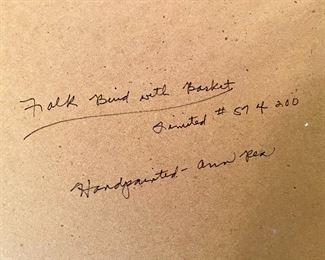 Folk Bird with Basket
Limited # 57 of 200
Handpainted - Ann Rea